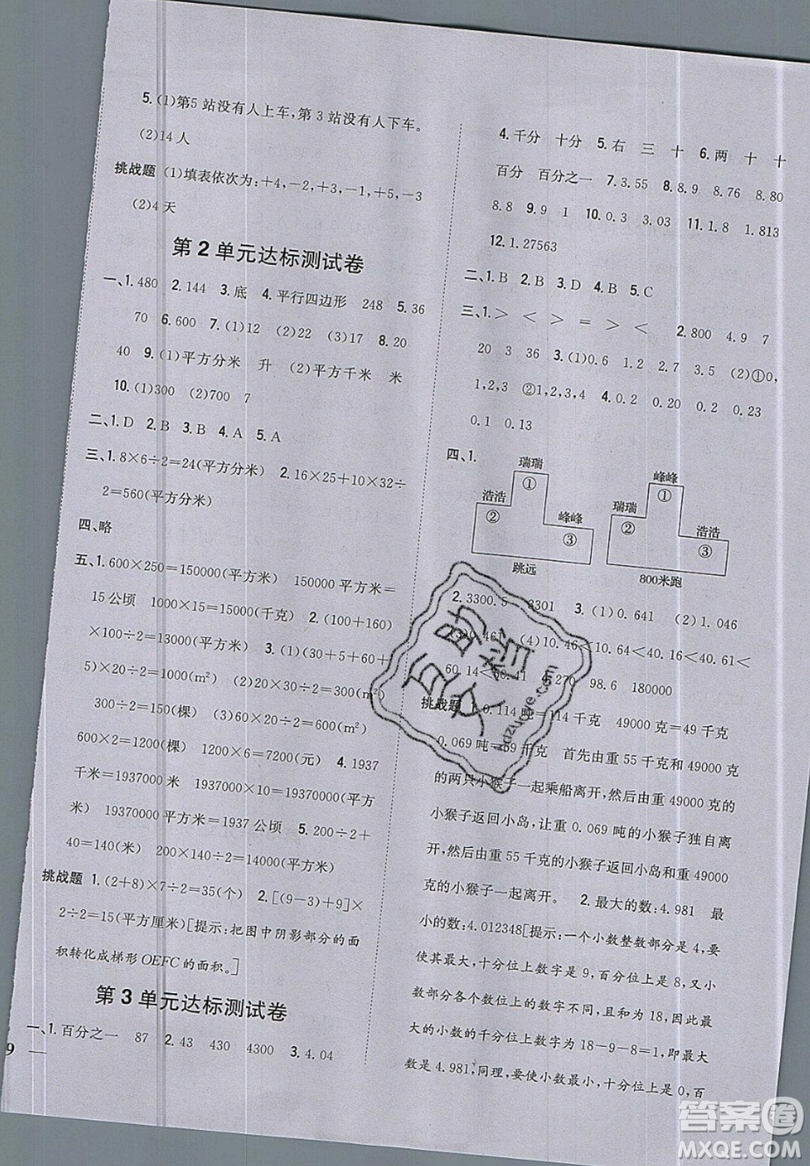 5. (1)第5站没有人上车,第3站没有人下车。
(2)14人
挑战题 (1)填表依次为:+4,-2,+3,-1,+5,-3
(2)4天
第2单元达标测试卷
一、1. 480 2. 144 3. 底 4. 平行四边形 248 5. 36
70 6. 600 7. (1)12 (2)22 (3)17 8. 20
40 9. (1)平方分米 升 (2)平方千米 米
10. (1)300 (2)700 7
二、1. D 2. B 3. B 4. A 5. A
三、1. 8×6÷2=24(平方分米) 2. 16×25+10×32÷
2=560(平方分米)
四、略
五、1. 600×250=150000(平方米) 150000平方米=
15公顷 1000×15=15000(千克) 2. (100+160)
×100÷2=13000(平方米) 3. (1)(30+5+60+
5)×20÷2=1000(m²) (2)20×20÷2+20×5
=300(m²) (3)60×20÷2=600(m²)
4. 1937
千米=1937000米 19370000平方米
19370000平方米=1937公顷 5. 200÷2+
40=140(米) 200×140÷2=14000(平方米)
挑战题 1. (2+8)×7÷2=35(个) 2. [(9-3)+9]×
2÷2=15(平方厘米)[提示:把图中阴影部分的面
积转化成梯形OEFC的面积。]
第3单元达标测试卷
一、1. 百分之一 87 2. 43 430 4300 3. 4.04
9
4. 千分 十分 5. 右 三 十 6. 两 十 十
百分 百分之一 7. 3.55 8. 8.9 8.76 8.80
8.8 9. 9 1 10. 0.3 3.03 11. 1.8 1.813
12. 1.27563
二、1. B 2. B 3. B 4. B 5. C
三、1. > < > = > < 2. 800 4.9 7
20 3 36 3. (1)0.6 1.2 1.5 2.7 (2)①0,
1,2,3 ②1,2,3,4 4. 0.2 0.20 0.2 0.23
0.1 0.13
四、1.
瑞瑞 ① 浩浩 ② 峰峰 ③
跳远
峰峰 ① 瑞瑞 ② 浩浩 ③
800米跑
2. 3300.5 8301 3. (1)0.641 (2)1.046
(4)10.46<10.64<40.61<
60.14 98.6 180000
挑战题 1. 0.114吨=114千克 49000克=49千克
0.069吨=69千克 首先由重55千克和49000克
的两只小猴子一起乘船离开,然后由重49000克的
小猴子返回小岛,让重0.069吨的小猴子独自离
开,然后由重55千克的小猴子返回小岛和49000克
的小猴子一起离开。 2. 最大的数:4.981 最
小的数:4.012348[提示:一个小数整数部分是4,要
使其最大,十分位上数字是9,百分位上是8,又因
小数部分各个数位上的数字不同,且和为18,因此最
大的小数的千分位上数字为18-9-8=1,即最大的
数是4.981,同理,要使小数最小,十分位上是0,百
互助文档
hdzuoye.com
答案卷
MXQE.COM